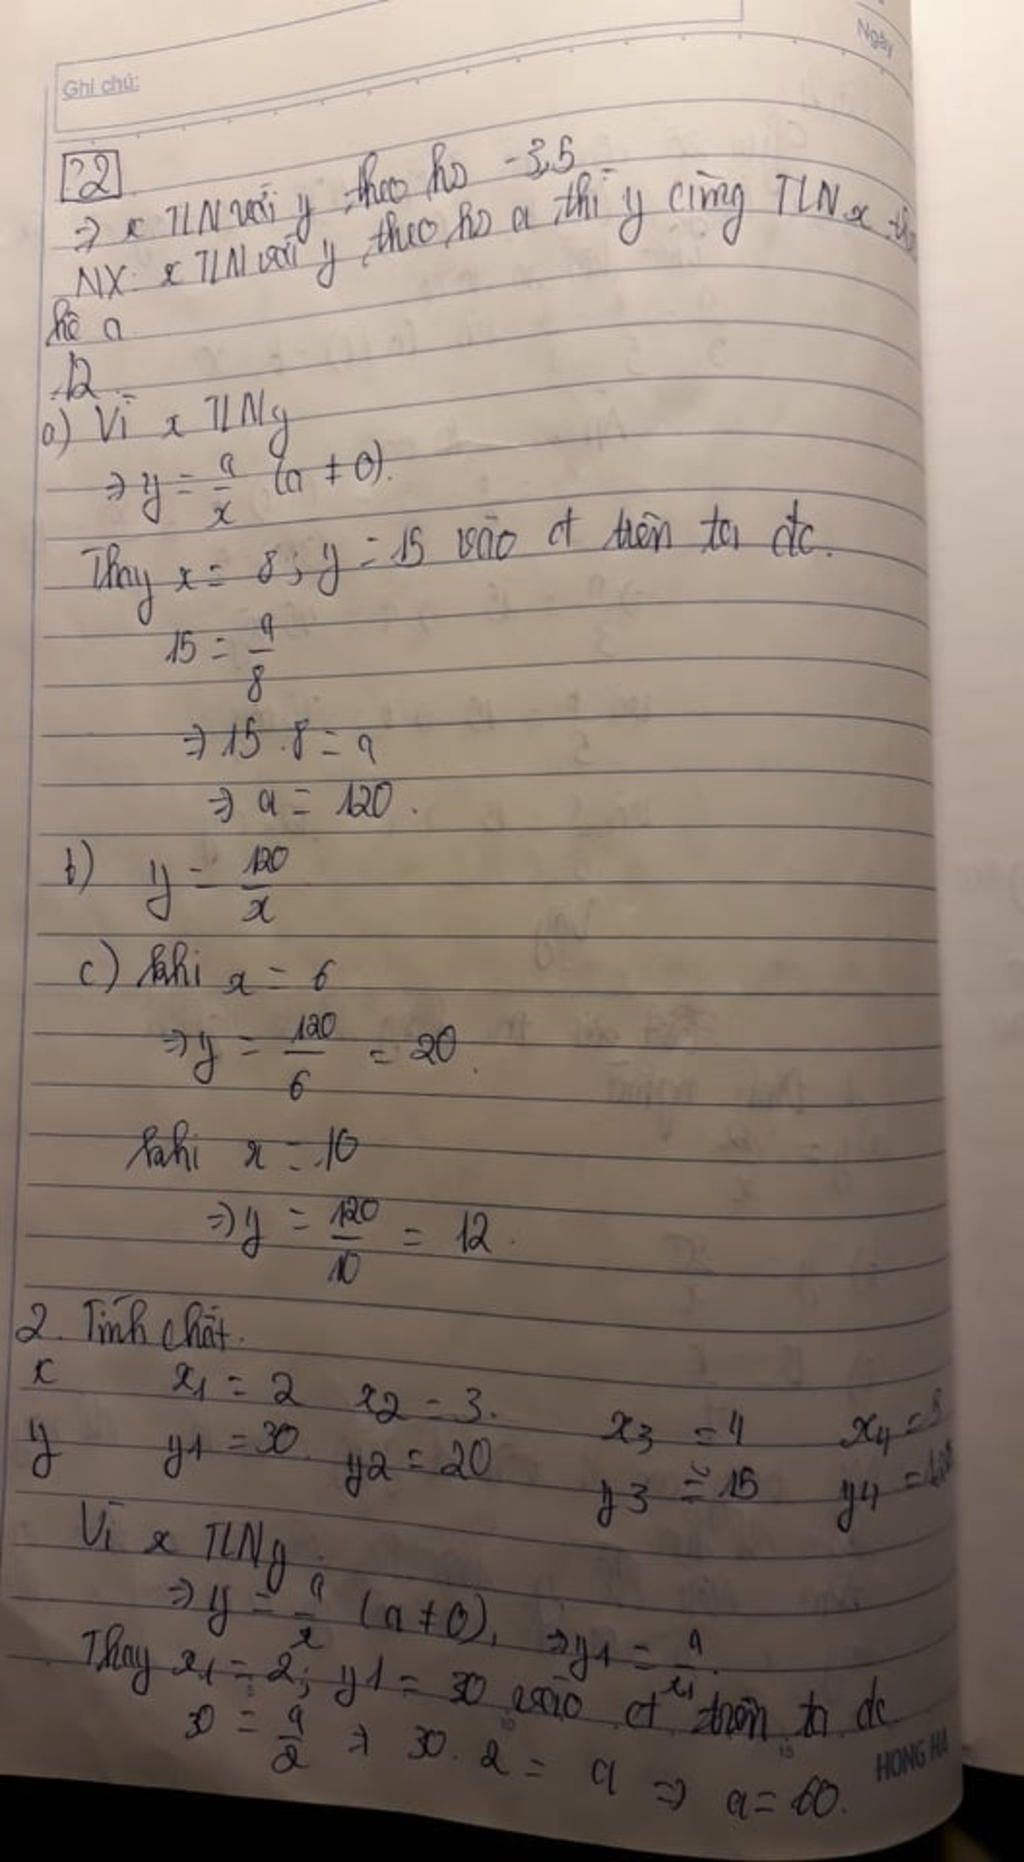 Ngày
Ghi chú:
?2
=> x TLN với y theo hs -3,5
NX: x TLN với y theo hs a thì y cũng TLN x
hệ a
12.
a) Vì x TLN y
=> y = a/x (a ≠ 0).
Thay x = 8; y = 15 vào ct trên ta đc.
15 = a/8
=> 15 . 8 = a
=> a = 120.
b) y = 120/x
c) khi x = 6
=> y = 120/6 = 20.
khi x = 10
=> y = 120/10 = 12.
2. Tính chất.
x x1 = 2 x2 = 3. x3 = 4 x4 = 5
y y1 = 30 y2 = 20 y3 = 15 y4 =
Vì x TLN y.
=> y = a/x (a ≠ 0), => y1 = a/x1.
Thay x1 = 2; y1 = 30 vào ct trên ta đc
30 = a/2 => 30 . 2 = a => a = 60.
HONG HA